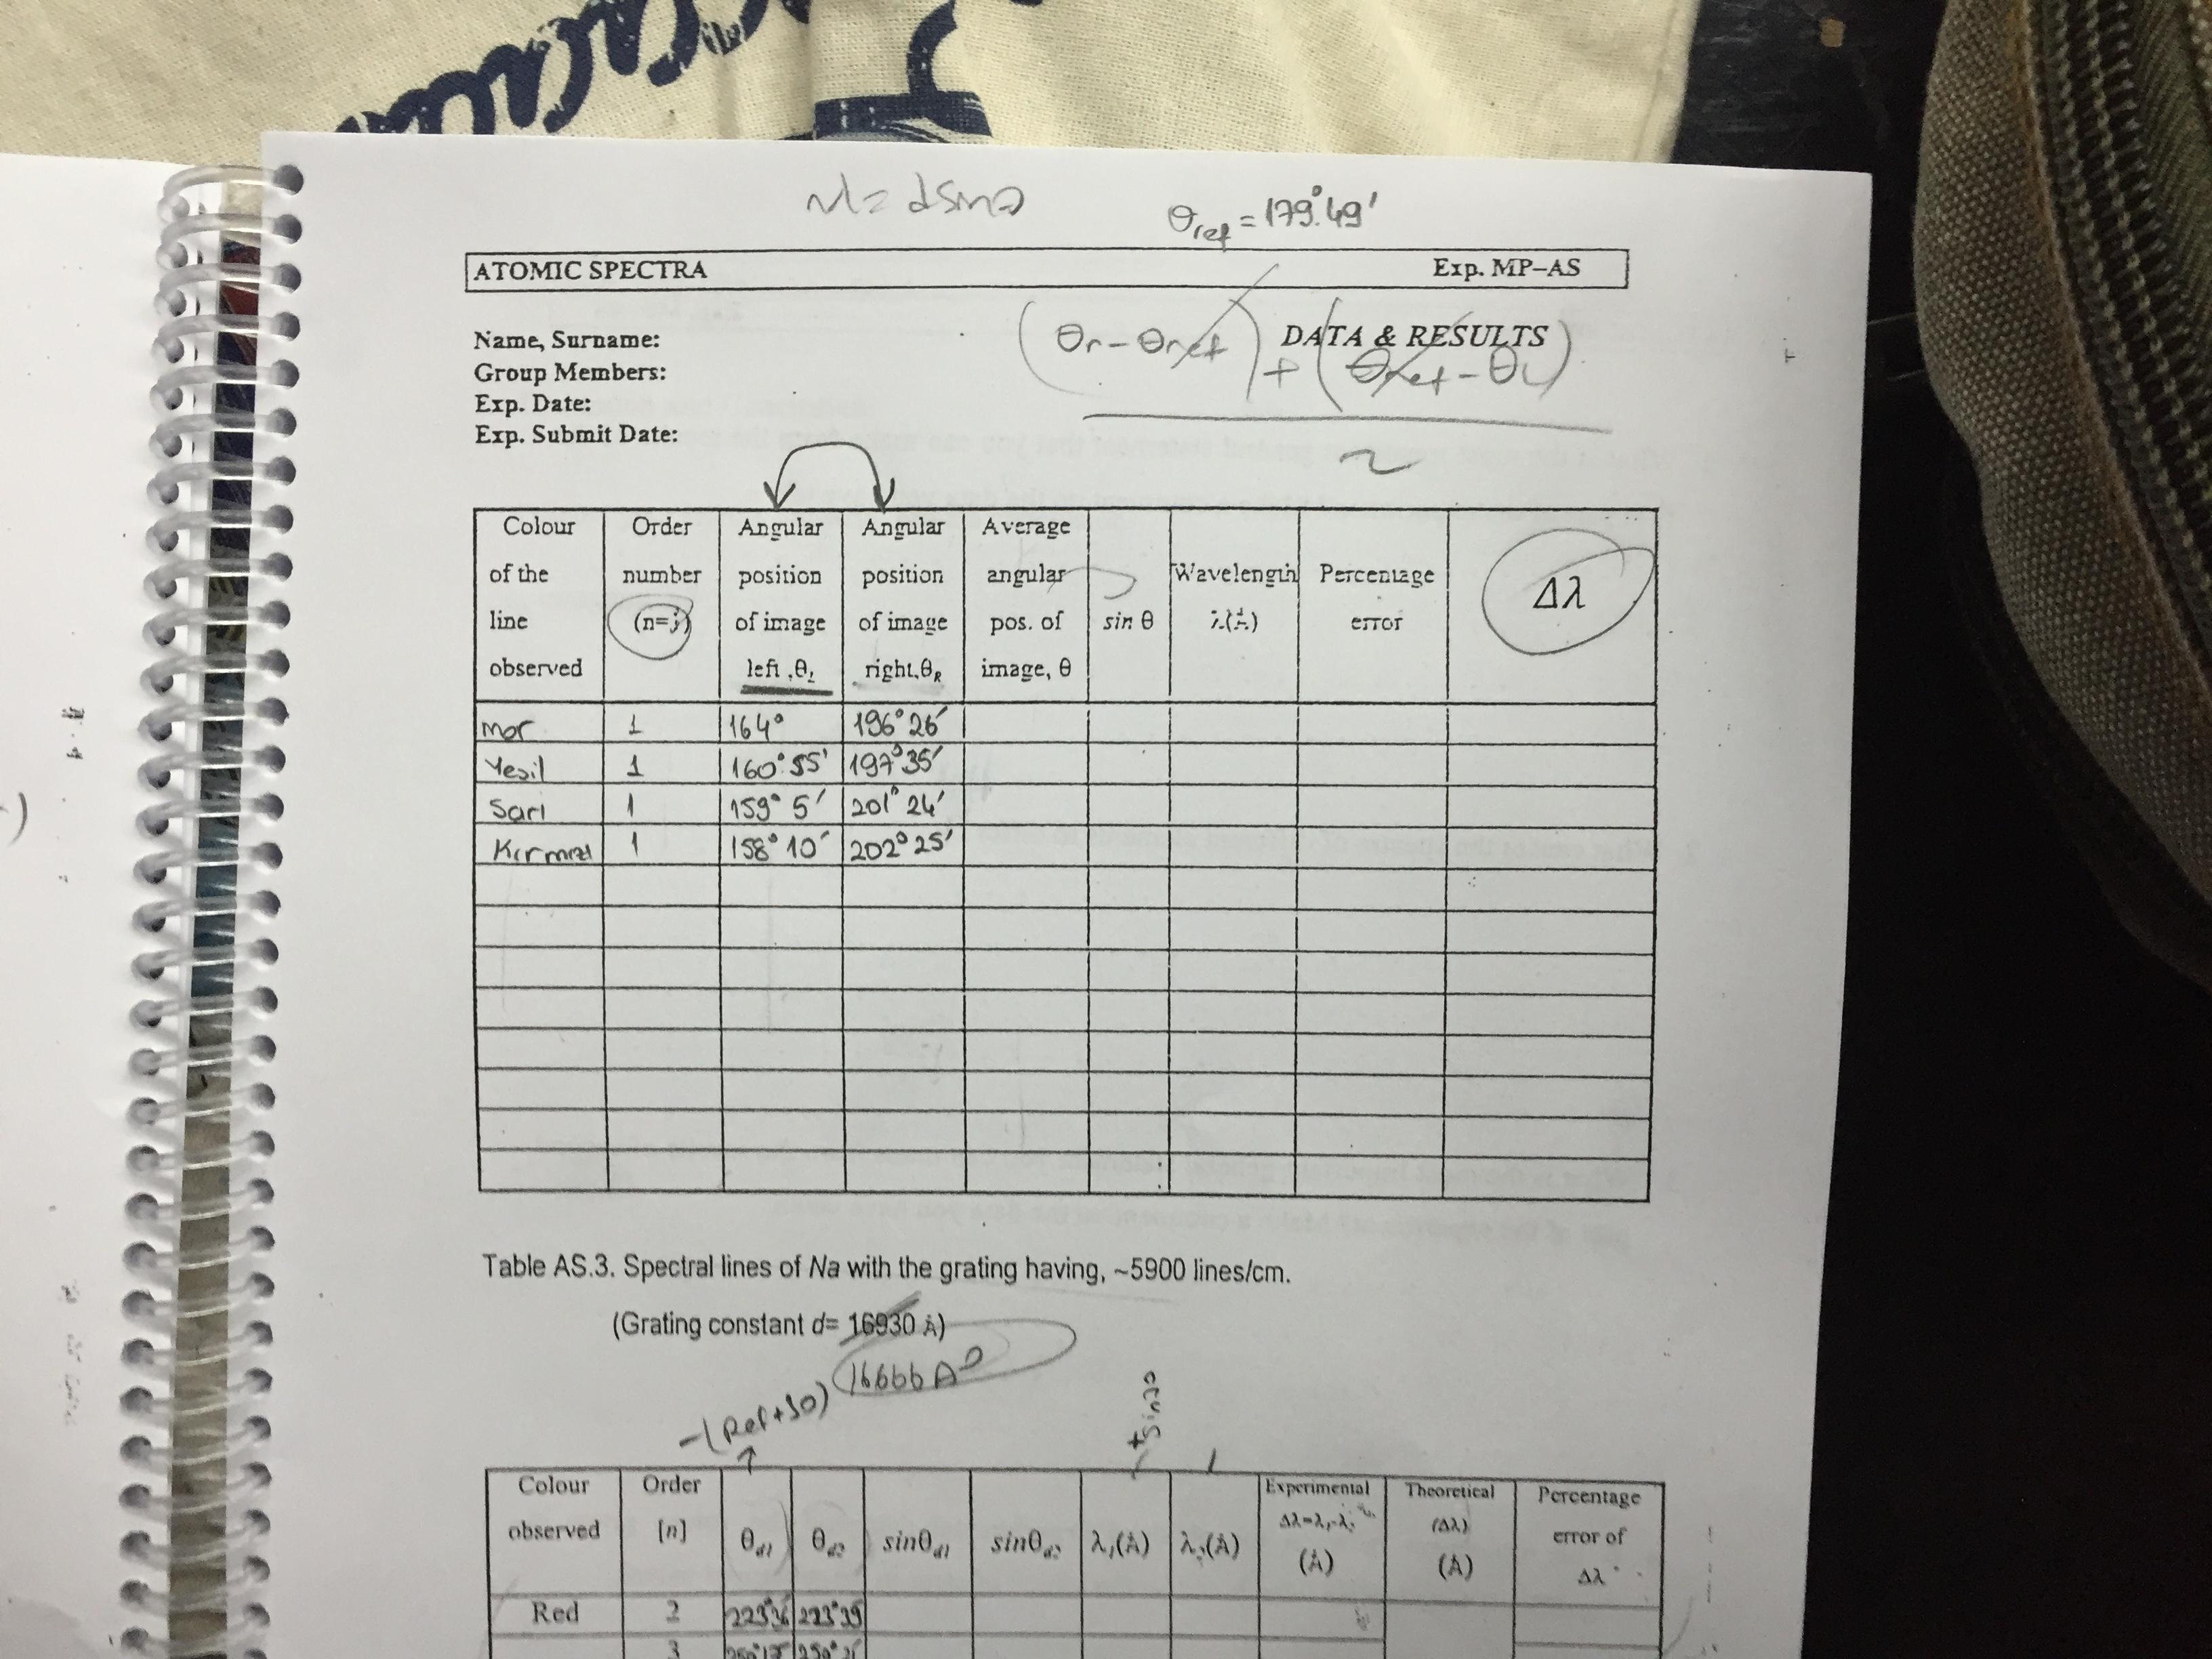 nλ = dsinθ
θref = 179°49'
ATOMIC SPECTRA Exp. MP-AS
DATA & RESULTS
(θr - θref) + (θref - θL)
2
Name, Surname:
Group Members:
Exp. Date:
Exp. Submit Date:
Colour of the line observed
Order number (n=j)
Angular position of image left, θL
Angular position of image right, θR
Average angular pos. of image, θ
sin θ
Wavelength λ(Å)
Percentage error
Δλ
Mor 1 164° 196°26'
Yeşil 1 160°55' 197°35'
Sarı 1 159°5' 201°24'
Kırmızı 1 158°10' 202°25'
Table AS.3. Spectral lines of Na with the grating having, ~5900 lines/cm.
(Grating constant d= 16930 Å)
16666 A°
-(Ref+50)
Colour observed
Order [n]
θd1
θd2
sinθd1
sinθd2
λ1(Å)
λ2(Å)
Experimental Δλ=λ1-λ2 (Å)
Theoretical (Δλ) (Å)
Percentage error of Δλ
Red 2 223°39
3